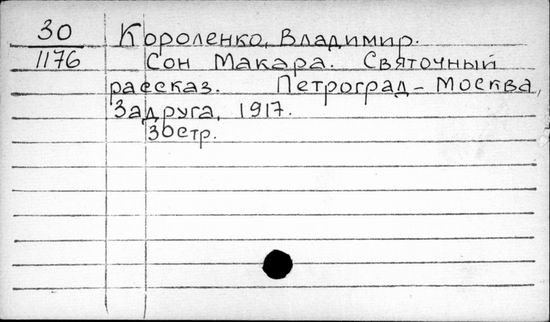 30 Короленко, Владимир.
1176 Сон Макара. Святочный
рассказ. Петроград - Москва,
Задруга, 1917.
30стр.